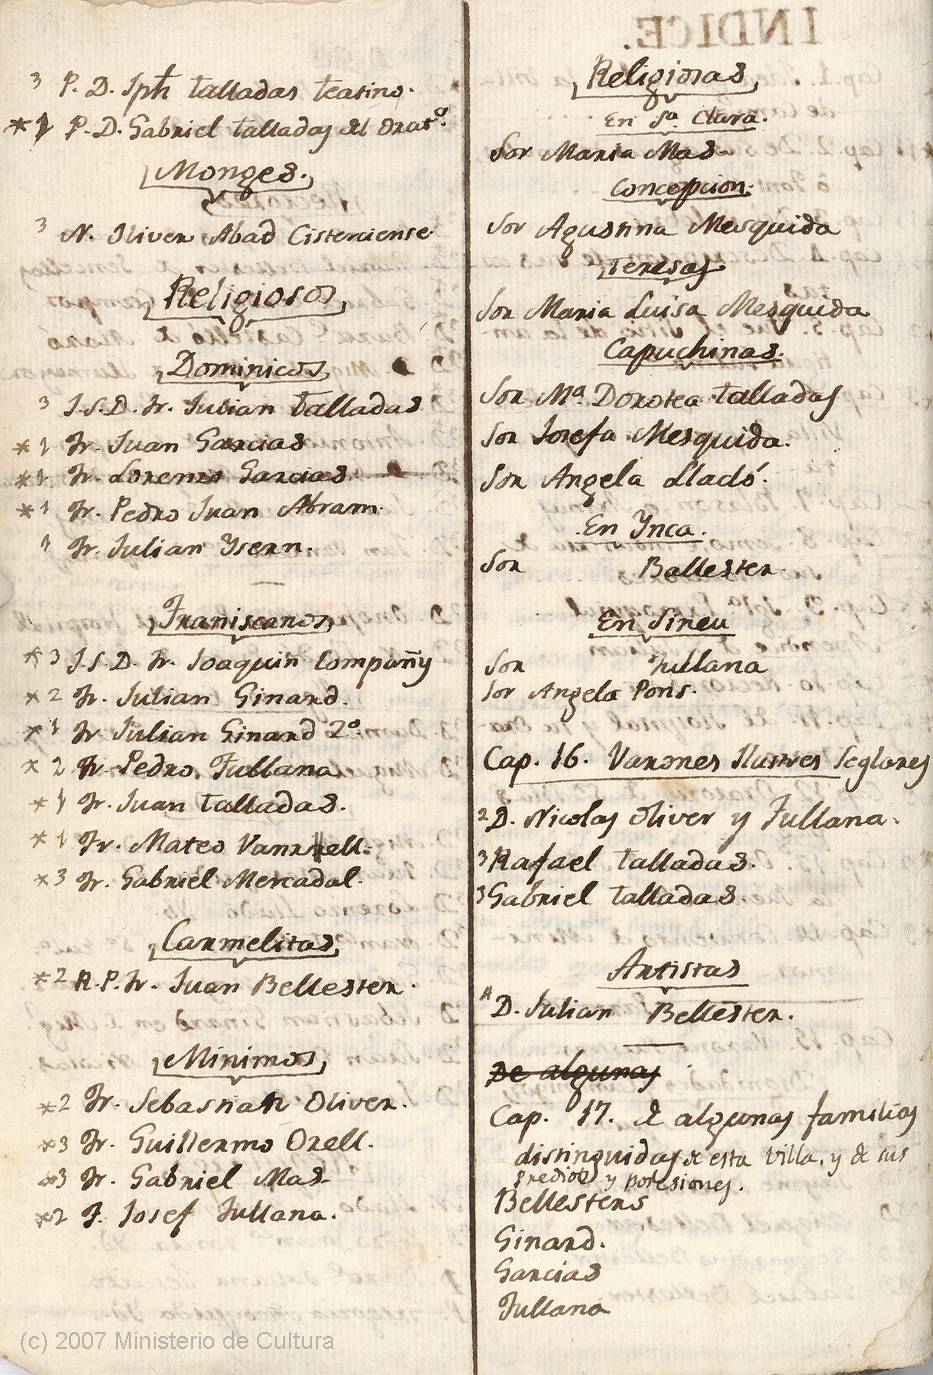 3 P. D. Jph Talladas Teatino.
*1 P. D. Gabriel Talladas del Orato.
Monges.
3 N. Oliver Abad Cisterciense
Religiosos
Dominicos
3 J.S.D. Fr. Julian Talladas
*1 Fr. Juan Garcias
*1 Fr. Lorenzo Garcias
*1 Fr. Pedro Juan Abram.
1 Fr. Julian Ysern.
Franiscanos
*3 J.S.D. Fr. Joaquin Compañy
*2 Fr. Julian Ginard.
*1 Fr. Julian Ginard 2º.
*2 Fr. Pedro Fullana.
*1 Fr. Juan Talladas.
*1 Fr. Mateo Vanrell.
*3 Fr. Gabriel Mercadal.
Carmelitas
*2 R.P.Fr. Juan Bellester.
Minimos
*2 Fr. Sebastian Oliver.
*3 Fr. Guillermo Orell.
*3 Fr. Gabriel Mas
*2 F. Josef Fullana.
INDICE.
Religiosas
En Sª. Clara.
Sor Maria Mas
Concepcion.
Sor Agustina Mesquida
Teresas
Sor Maria Luisa Mesquida
Capuchinas.
Sor Mª Dorotea Talladas
Sor Josefa Mesquida.
Sor Angela Lladó.
En Ynca.
Sor Ballester.
En Sineu
Sor Fullana
Sor Angela Pons.
Cap. 16. Varones Ilustres Seglares
2 D. Nicolas Oliver y Fullana.
3 Rafael Talladas.
3 Gabriel Talladas.
Artistas
D. Julian Bellester.
De algunas
Cap. 17. de algunas familias
distinguidas de esta Villa, y de sus
predios y posesiones.
Bellesters
Ginard.
Garcias
Fullana
(c) 2007 Ministerio de Cultura